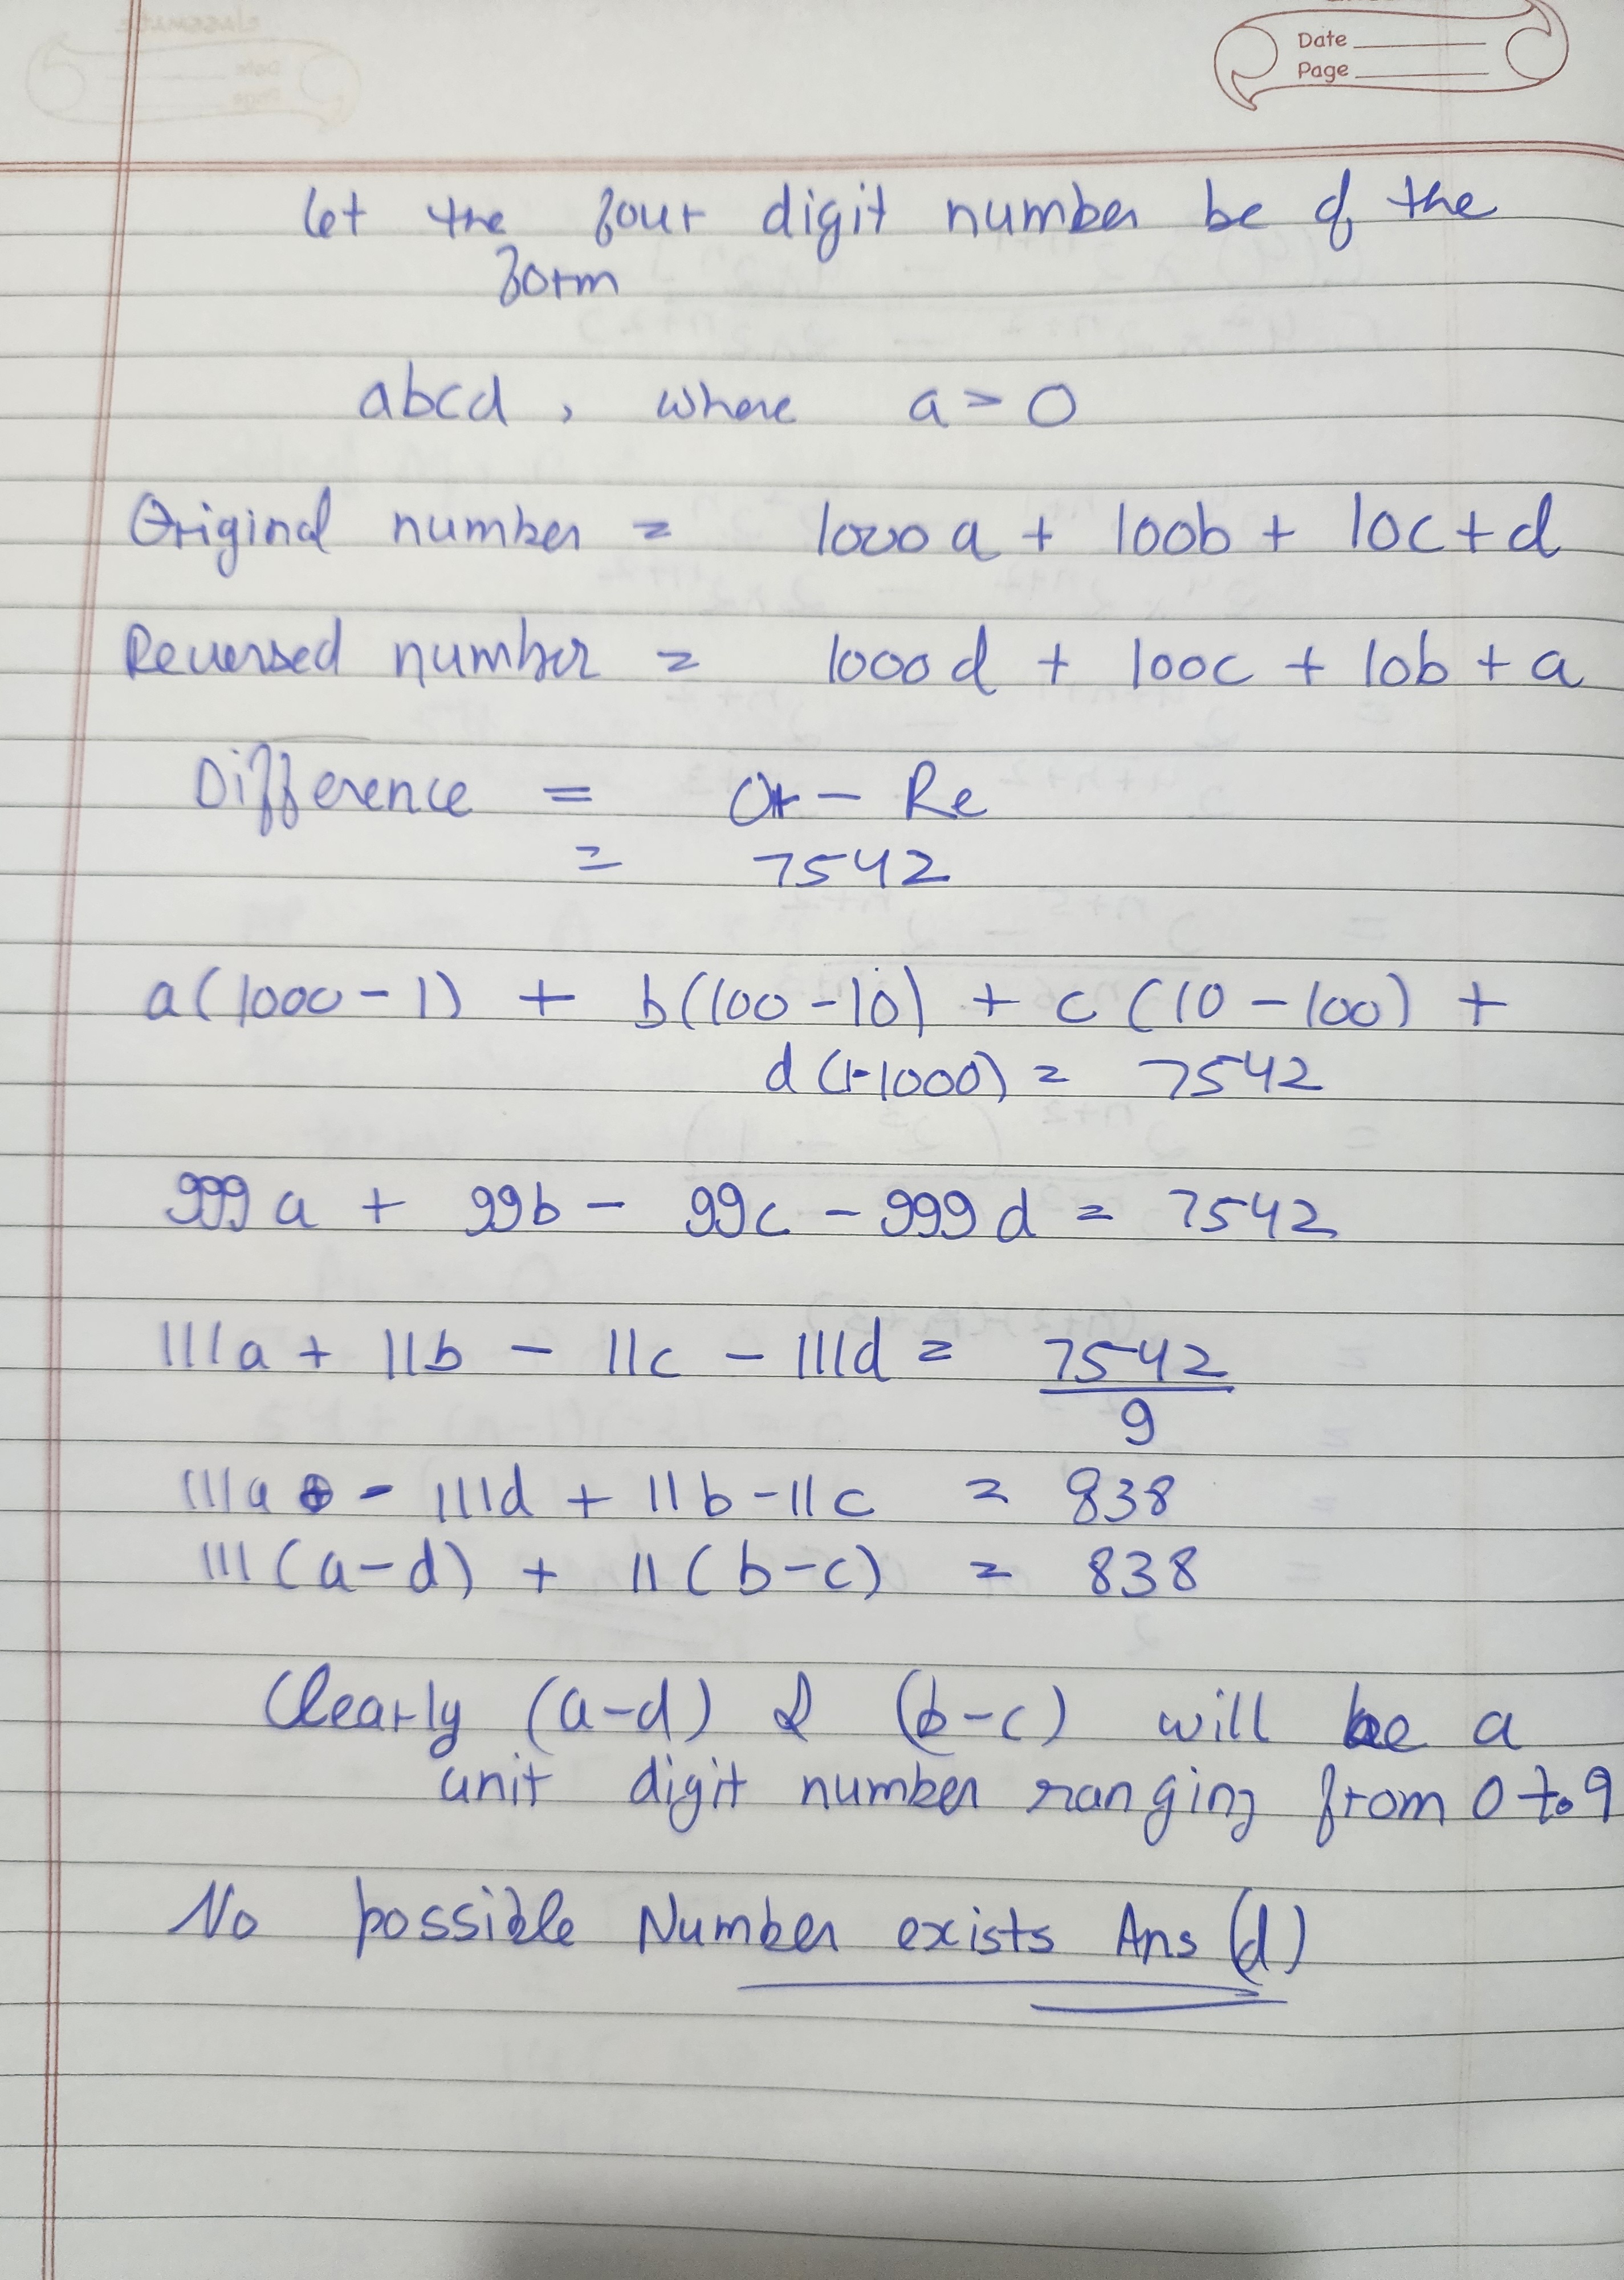 Date
Page
let the four digit number be of the
form
abcd, where a > 0
Original number = 1000a + 100b + 10c + d
Reversed number = 1000d + 100c + 10b + a
Difference = Or - Re
= 7542
a(1000-1) + b(100-10) + c(10-100) +
d(1-1000) = 7542
999a + 99b - 99c - 999d = 7542
111a + 11b - 11c - 111d = 7542/9
111a - 111d + 11b - 11c = 838
111(a-d) + 11(b-c) = 838
Clearly (a-d) & (b-c) will be a
unit digit number ranging from 0 to 9
No possible Number exists Ans (d)